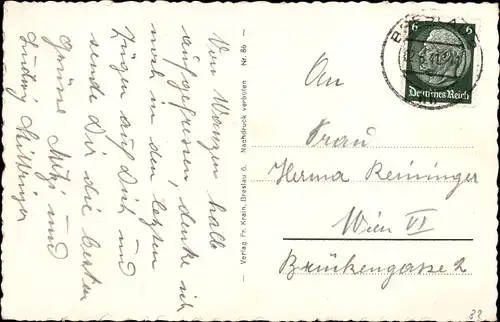 Von Wanzen halb
aufgefressen, denke ich
noch in den letzten
Zügen auf Dich und
sende Dir die besten
Grüsse Mitzi und
Ludwig
Verlag Fr. Krain, Breslau 6. Nachdruck verboten Nr. 86
6 6
Deutsches Reich
BRESLAU
An
Frau
Herma Reininger
Wien VI
Brückengasse 2